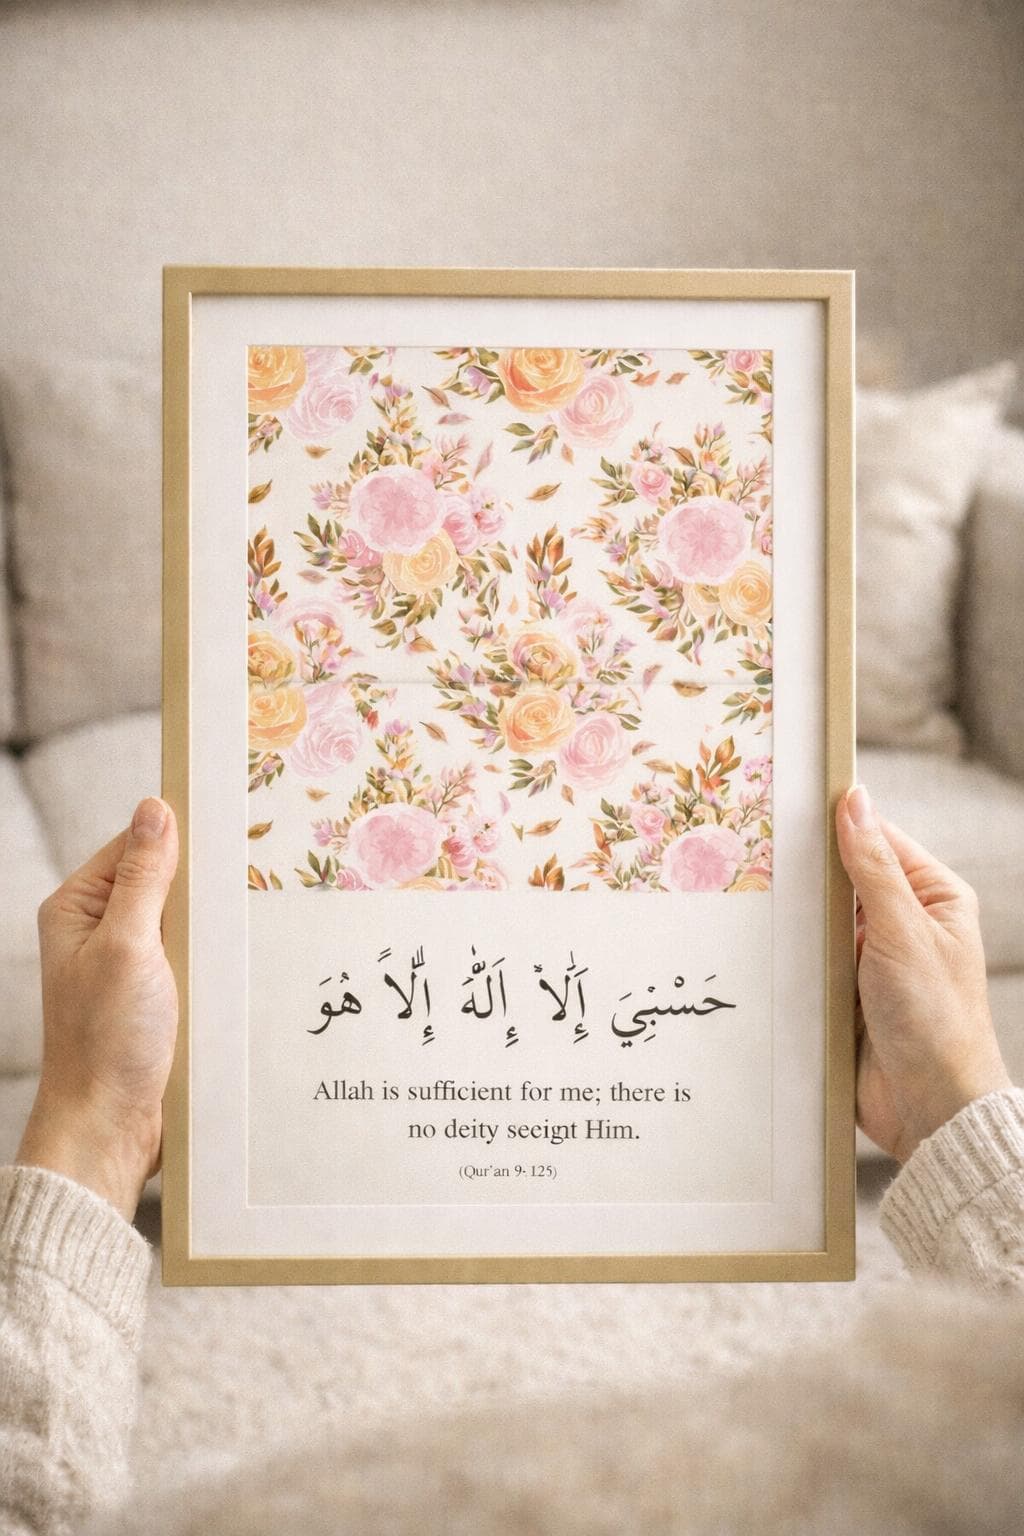 حَسْبِيَ إَلَّا إِلَّهَ إِلَّا هُوَ
Allah is sufficient for me; there is
no deity seeignt Him.
(Qur'an 9:125)